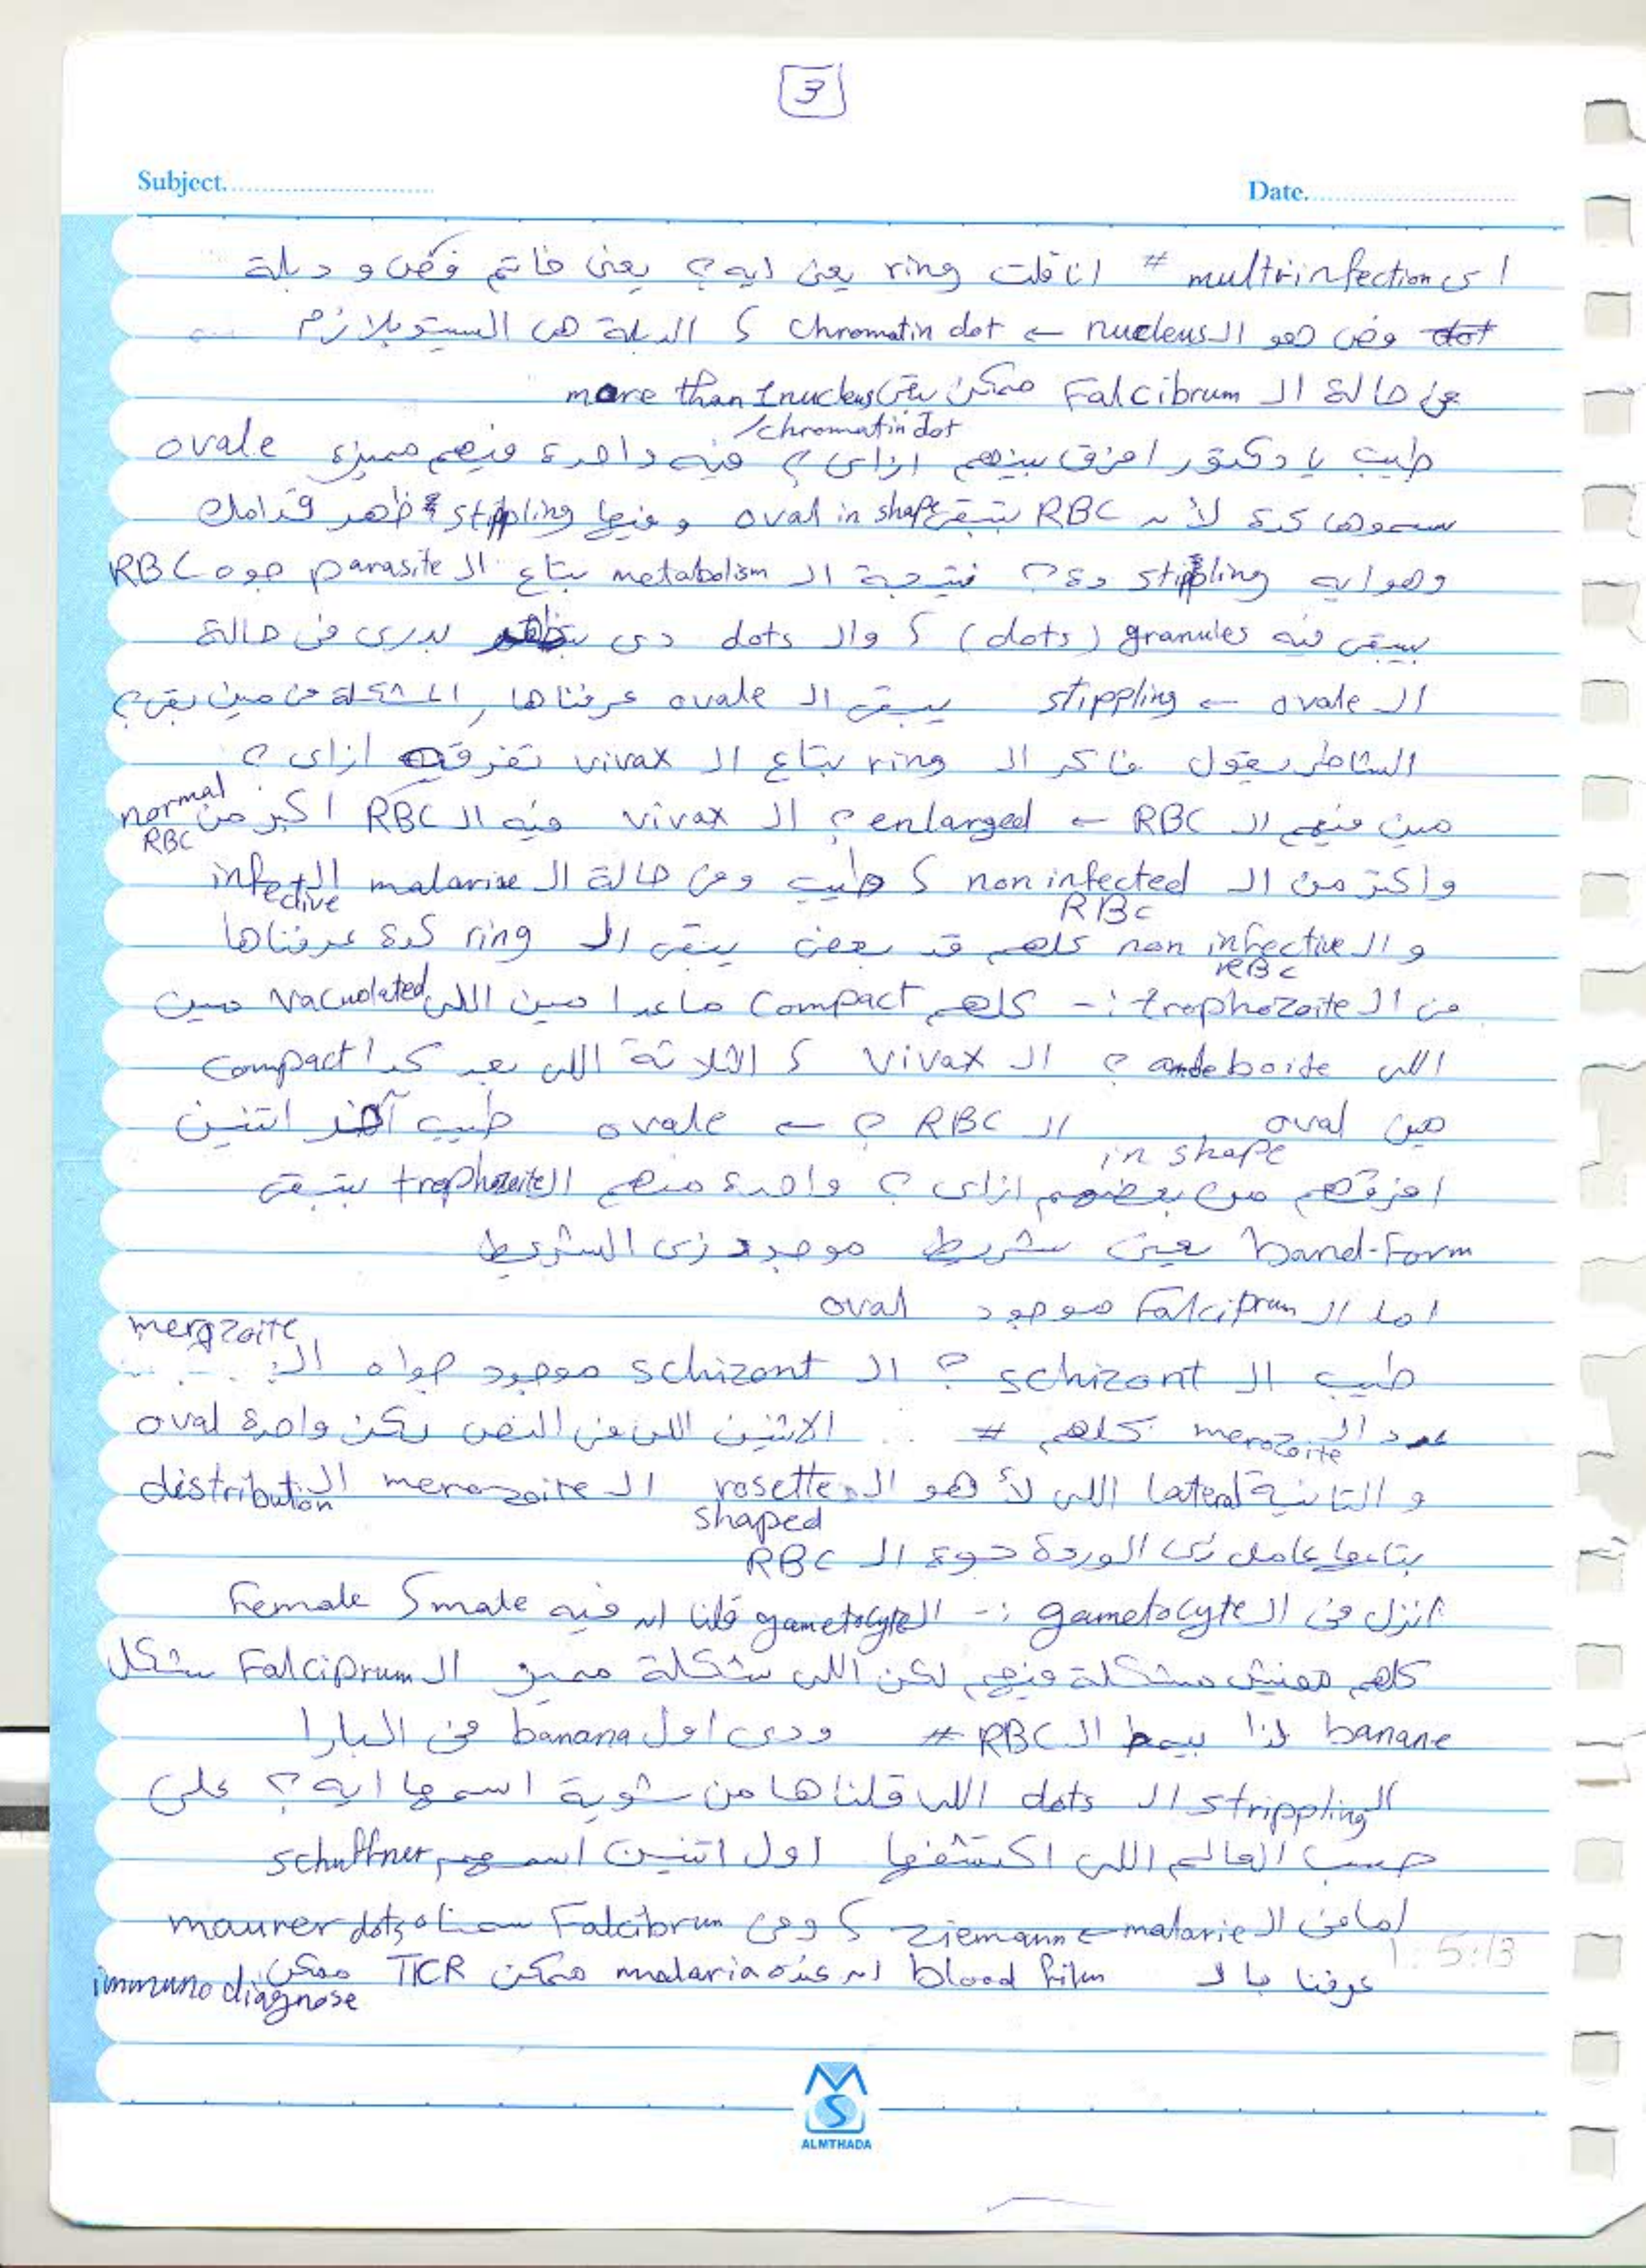 3
Subject.
Date.
اى multiinfection # انا قلت ring يعنى ايه ؟ يعنى خاتم فص و دبلة
dot وفص هو الـ nucleus ← chromatin dot ، الدبلة هى السيتوبلازم
فى حالة الـ Falcibrum ممكن يبقى more than 1 nucleus
/chromatin dot
طيب يا دكتور افرق بينهم ازاى ؟ فيه واحدة فيهم مميزة ovale
سموها كدة لأن RBC بتبقى oval in shape و فيها stippling تظهر قدامك
وهو ايه stippling دة ؟ نتيجة الـ metabolism بتاع الـ parasite جوه RBC
بيبقى فيه granules (dots) ، والـ dots دى بتظهر بدرى فى حالة
الـ ovale ← stippling يبقى الـ ovale عرفناها , المشكلة فى مين بقى ؟
الشاطر يقول فاكر الـ ring بتاع الـ vivax تفرقه ازاى ؟
مين فيهم الـ RBC ← enlarged ؟ الـ vivax فيه الـ RBC اكبر من normal
RBC
واكتر من الـ non infected ، طيب وفى حالة الـ malariae الـ infective
RBC
و الـ non infective كلهم قد بعض يبقى الـ ring كدة عرفناها
RBC
فى الـ trophozoite :- كلهم compact ماعدا مين اللى vacuolated مين
اللى ameboide ؟ الـ vivax ، الثلاثة اللى بعد كدا compact
مين oval الـ RBC ؟ ← ovale طيب آخر اتنين
in shape
افرقهم من بعضهم ازاى ؟ واحدة منهم الـ trophozoite بتبقى
band-form يعنى شريط موجود زى الشريط
اما الـ Falciprum موجود oval
merozoite
طيب الـ schizont ؟ الـ schizont موجود جواه الـ
عدد الـ merozoite كلهم # الاتنين اللى فى النص لكن واحدة oval
و التانية lateral اللى لأ هو الـ rosette الـ merozoite الـ distribution
shaped
بتاعها عامل زى الوردة جوة الـ RBC
انزل فى الـ gametocyte :- الـ gametocyte قلنا ان فيه male ، female
كلهم مفيش مشكلة فيهم لكن اللى شكله مميز الـ Falciprum بشكل
banane لذا بيمط الـ RBC # ودى اول banana فى البارا
الـ strippling الـ dots اللى قلناها من شوية اسمها ايه ؟ على
حسب العالم اللى اكتشفها اول اتنين اسمهم schuffner
اما فى الـ malarie ← ziemann ، وفى Falcibrum سمناه maurer dots
عرفنا بالـ blood film ان عنده malaria ممكن TCR ممكن immuno diagnose
1:5:13
MS
ALMTHADA